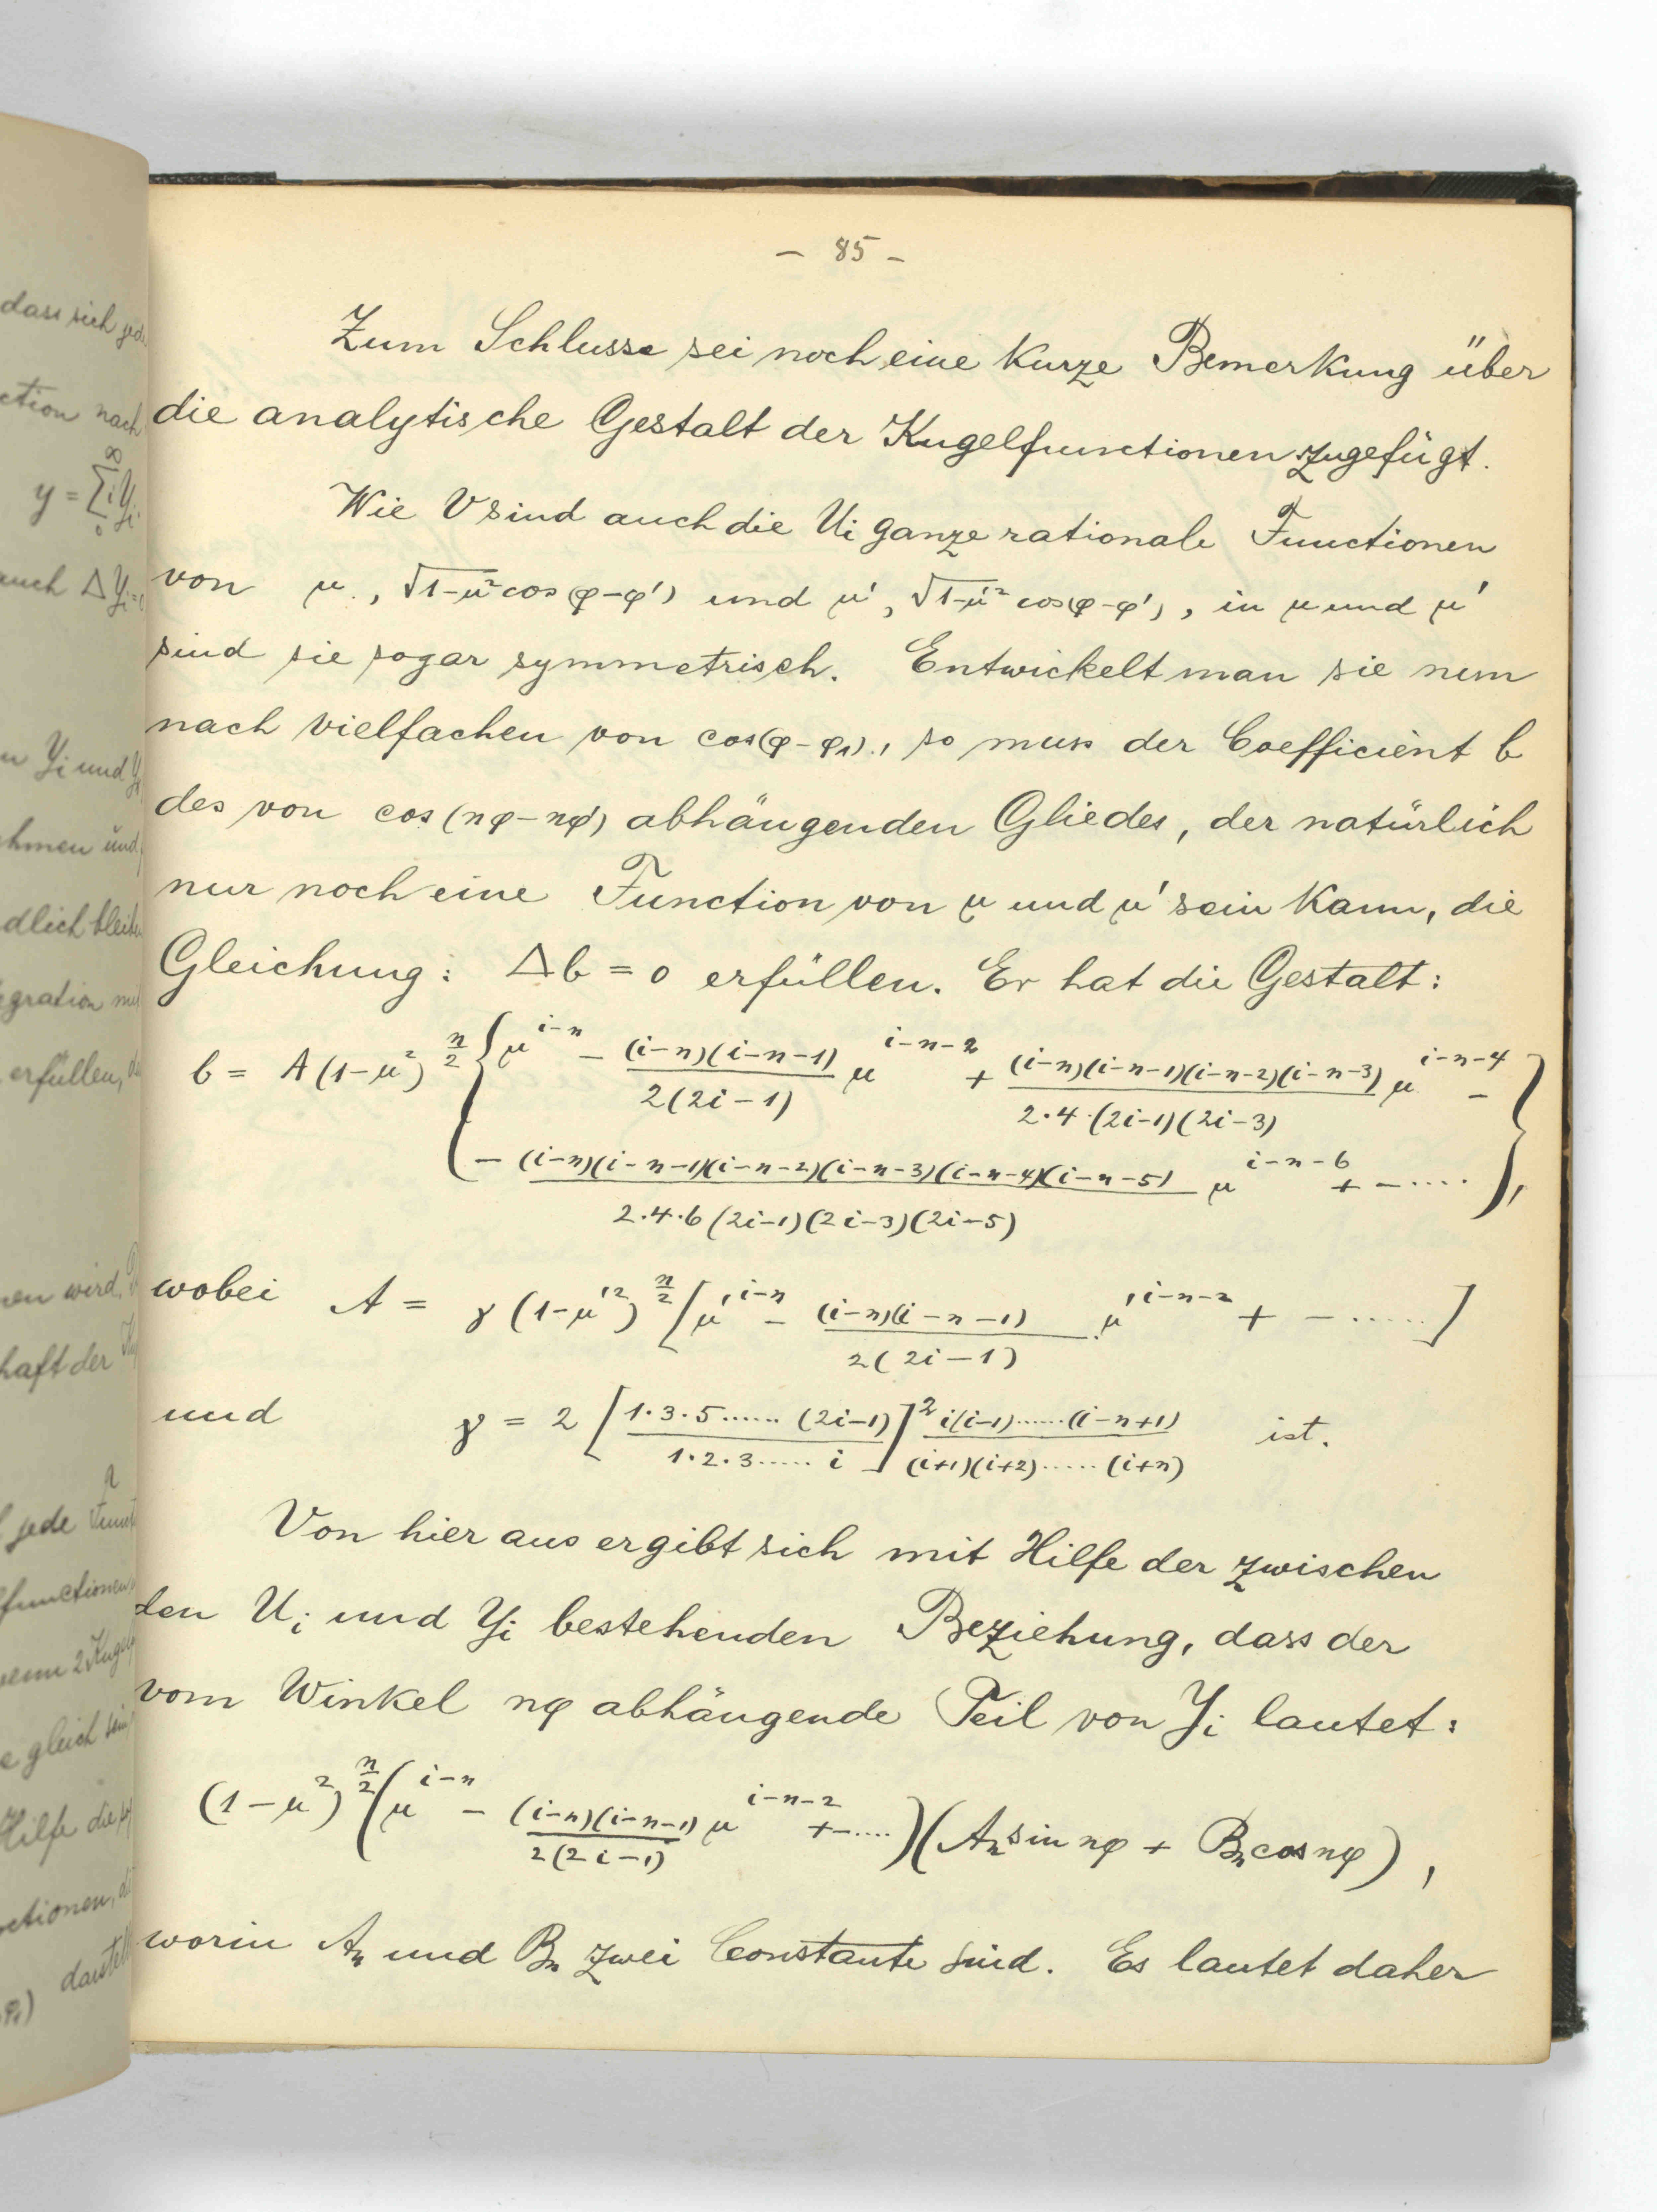 dass sich
ction nach
y = ∑ i Yi
auch Δ Yi = 0
n Yi und
hmen und
dlich bleib
gration
erfüllen,
en wird,
haft der
jede
functionen
wenn 2 Kugel
e gleich sein
Hilfe die
ctionen,
darstell
– 85 –
Zum Schlusse sei noch eine Kurze Bemerkung über
die analytische Gestalt der Kugelfunctionen zugefügt.
Wie V sind auch die Ui ganze rationale Functionen
von μ, √1-μ² cos(φ-φ') und μ', √1-μ'² cos(φ-φ'), in μ und μ'
sind sie sogar symmetrisch. Entwickelt man sie nun
nach vielfachen von cos(φ-φ1), so muss der Coefficient b
des von cos(nφ-nφ') abhängenden Gliedes, der natürlich
nur noch eine Function von μ und μ' sein Kann, die
Gleichung: Δb = 0 erfüllen. Er hat die Gestalt:
b = A(1-μ²)^(n/2) { μ^(i-n) - (i-n)(i-n-1)/2(2i-1) μ^(i-n-2) + (i-n)(i-n-1)(i-n-2)(i-n-3)/2·4·(2i-1)(2i-3) μ^(i-n-4) -
- (i-n)(i-n-1)(i-n-2)(i-n-3)(i-n-4)(i-n-5)/2·4·6(2i-1)(2i-3)(2i-5) μ^(i-n-6) + - ····· },
wobei A = γ(1-μ'²)^(n/2) [ μ'^(i-n) - (i-n)(i-n-1)/2(2i-1) · μ'^(i-n-2) + - ······ ]
und γ = 2 [ 1·3·5······(2i-1)/1·2·3····· i ]² i(i-1)······(i-n+1)/(i+1)(i+2)······(i+n) ist.
Von hier aus ergibt sich mit Hilfe der zwischen
den Ui und Yi bestehenden Beziehung, dass der
vom Winkel nφ abhängende Teil von Yi lautet:
(1-μ²)^(n/2) ( μ^(i-n) - (i-n)(i-n-1)/2(2i-1) μ^(i-n-2) + - ····· )( An sin nφ + Bn cos nφ ),
worin An und Bn zwei Constante sind. Es lautet daher